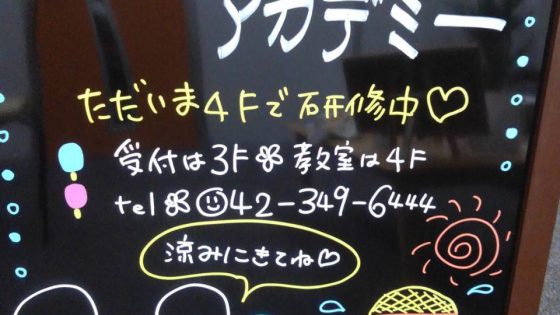 アカデミー
ただいま4Fで研修中♡
受付は3F 教室は4F
tel ☺42-349-6444
涼みにきてね♡